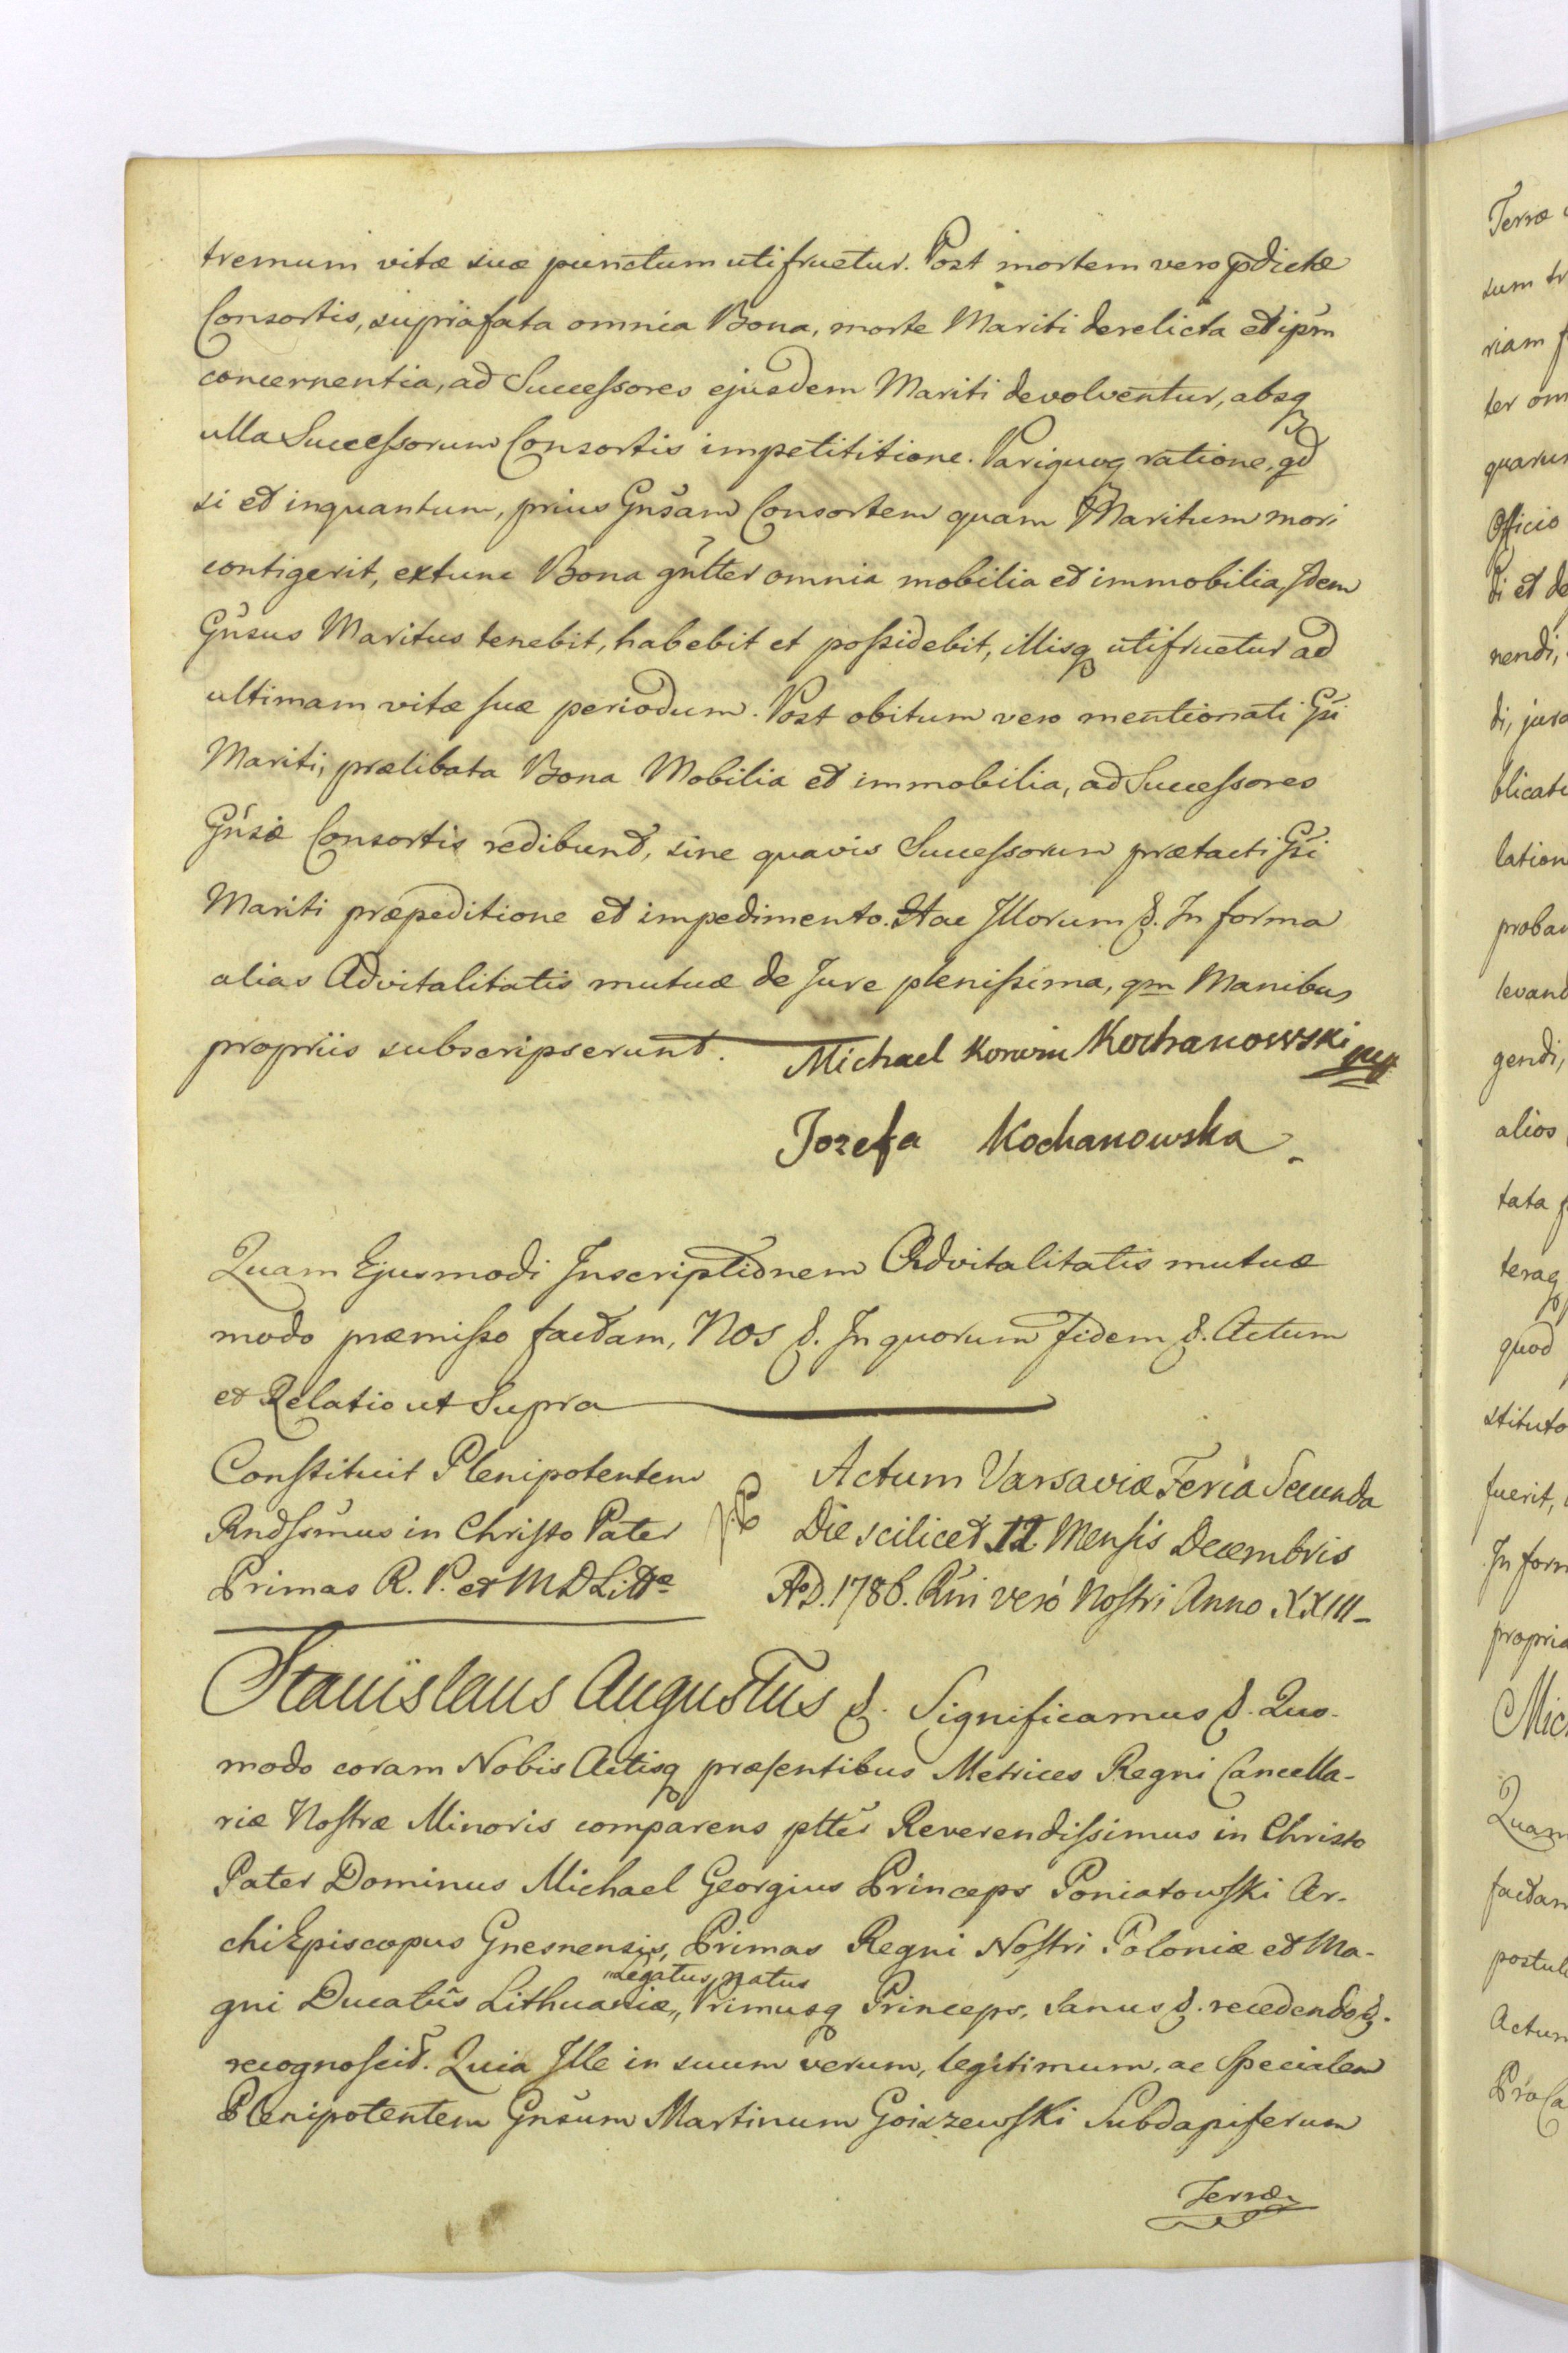 tremum vitæ suæ punctum utifruetur. Post mortem vero pdictæ
Consortis, suprafata omnia Bona, morte Mariti derelicta et ipm
concernentia, ad Successores ejusdem Mariti devolventur, absq
ulla Successorum Consortis impetititione. Pariquoq ratione, qd
si et inquantum, prius Gnsam Consortem quam Maritum mori
contigerit, extunc Bona gnlter omnia mobilia et immobilia, Idem
Gnsus Maritus tenebit, habebit et possidebit, illisq utifruetur ad
ultimam vitæ suæ periodum. Post obitum vero mentionati Gsi
Mariti, prælibata Bona Mobilia et immobilia, ad Successores
Gnsæ Consortis redibunt, sine quavis Successorum prætacti Gsi
Mariti præpeditione et impedimento. Hac Illorum &. In forma
alias Advitalitatis mutuæ de Jure plenissima, qm Manibus
propriis subscripserunt. Michael Korwin Kochanowski mp
Jozefa Kochanowska
Quam Ejusmodi Inscriptionem Advitalitatis mutuæ
modo præmisso factam, Nos &. In quorum fidem &. Actum
et Relatio ut Supra
Constituit Plenipotentem
Rndssmus in Christo Pater
Primas R. P. et M D Littæ
Actum Varsaviæ Feria Secunda
Die scilicet 11 Mensis Decembris
A.D. 1786. Rni verò Nostri Anno XXIII
Stanislaus Augustus &. Significamus &. Quo-
modo coram Nobis Actisq præsentibus Metrices Regni Cancella-
riæ Nostræ Minoris comparens pltter Reverendissimus in Christo
Pater Dominus Michael Georgius Princeps Poniatowski Ar-
chiEpiscopus Gnesnensis, Primas Regni Nostri Poloniæ et Ma-
Legatus natus
gni Ducatûs Lithuaniæ,, Primusq Princeps, Sanus &. recedendo &.
recognoscit. Quia Ille in suum verum, legitimum, ac Specialem
Plenipotentem Gnsum Martinum Goiszewski Subdapiferum
Terræ